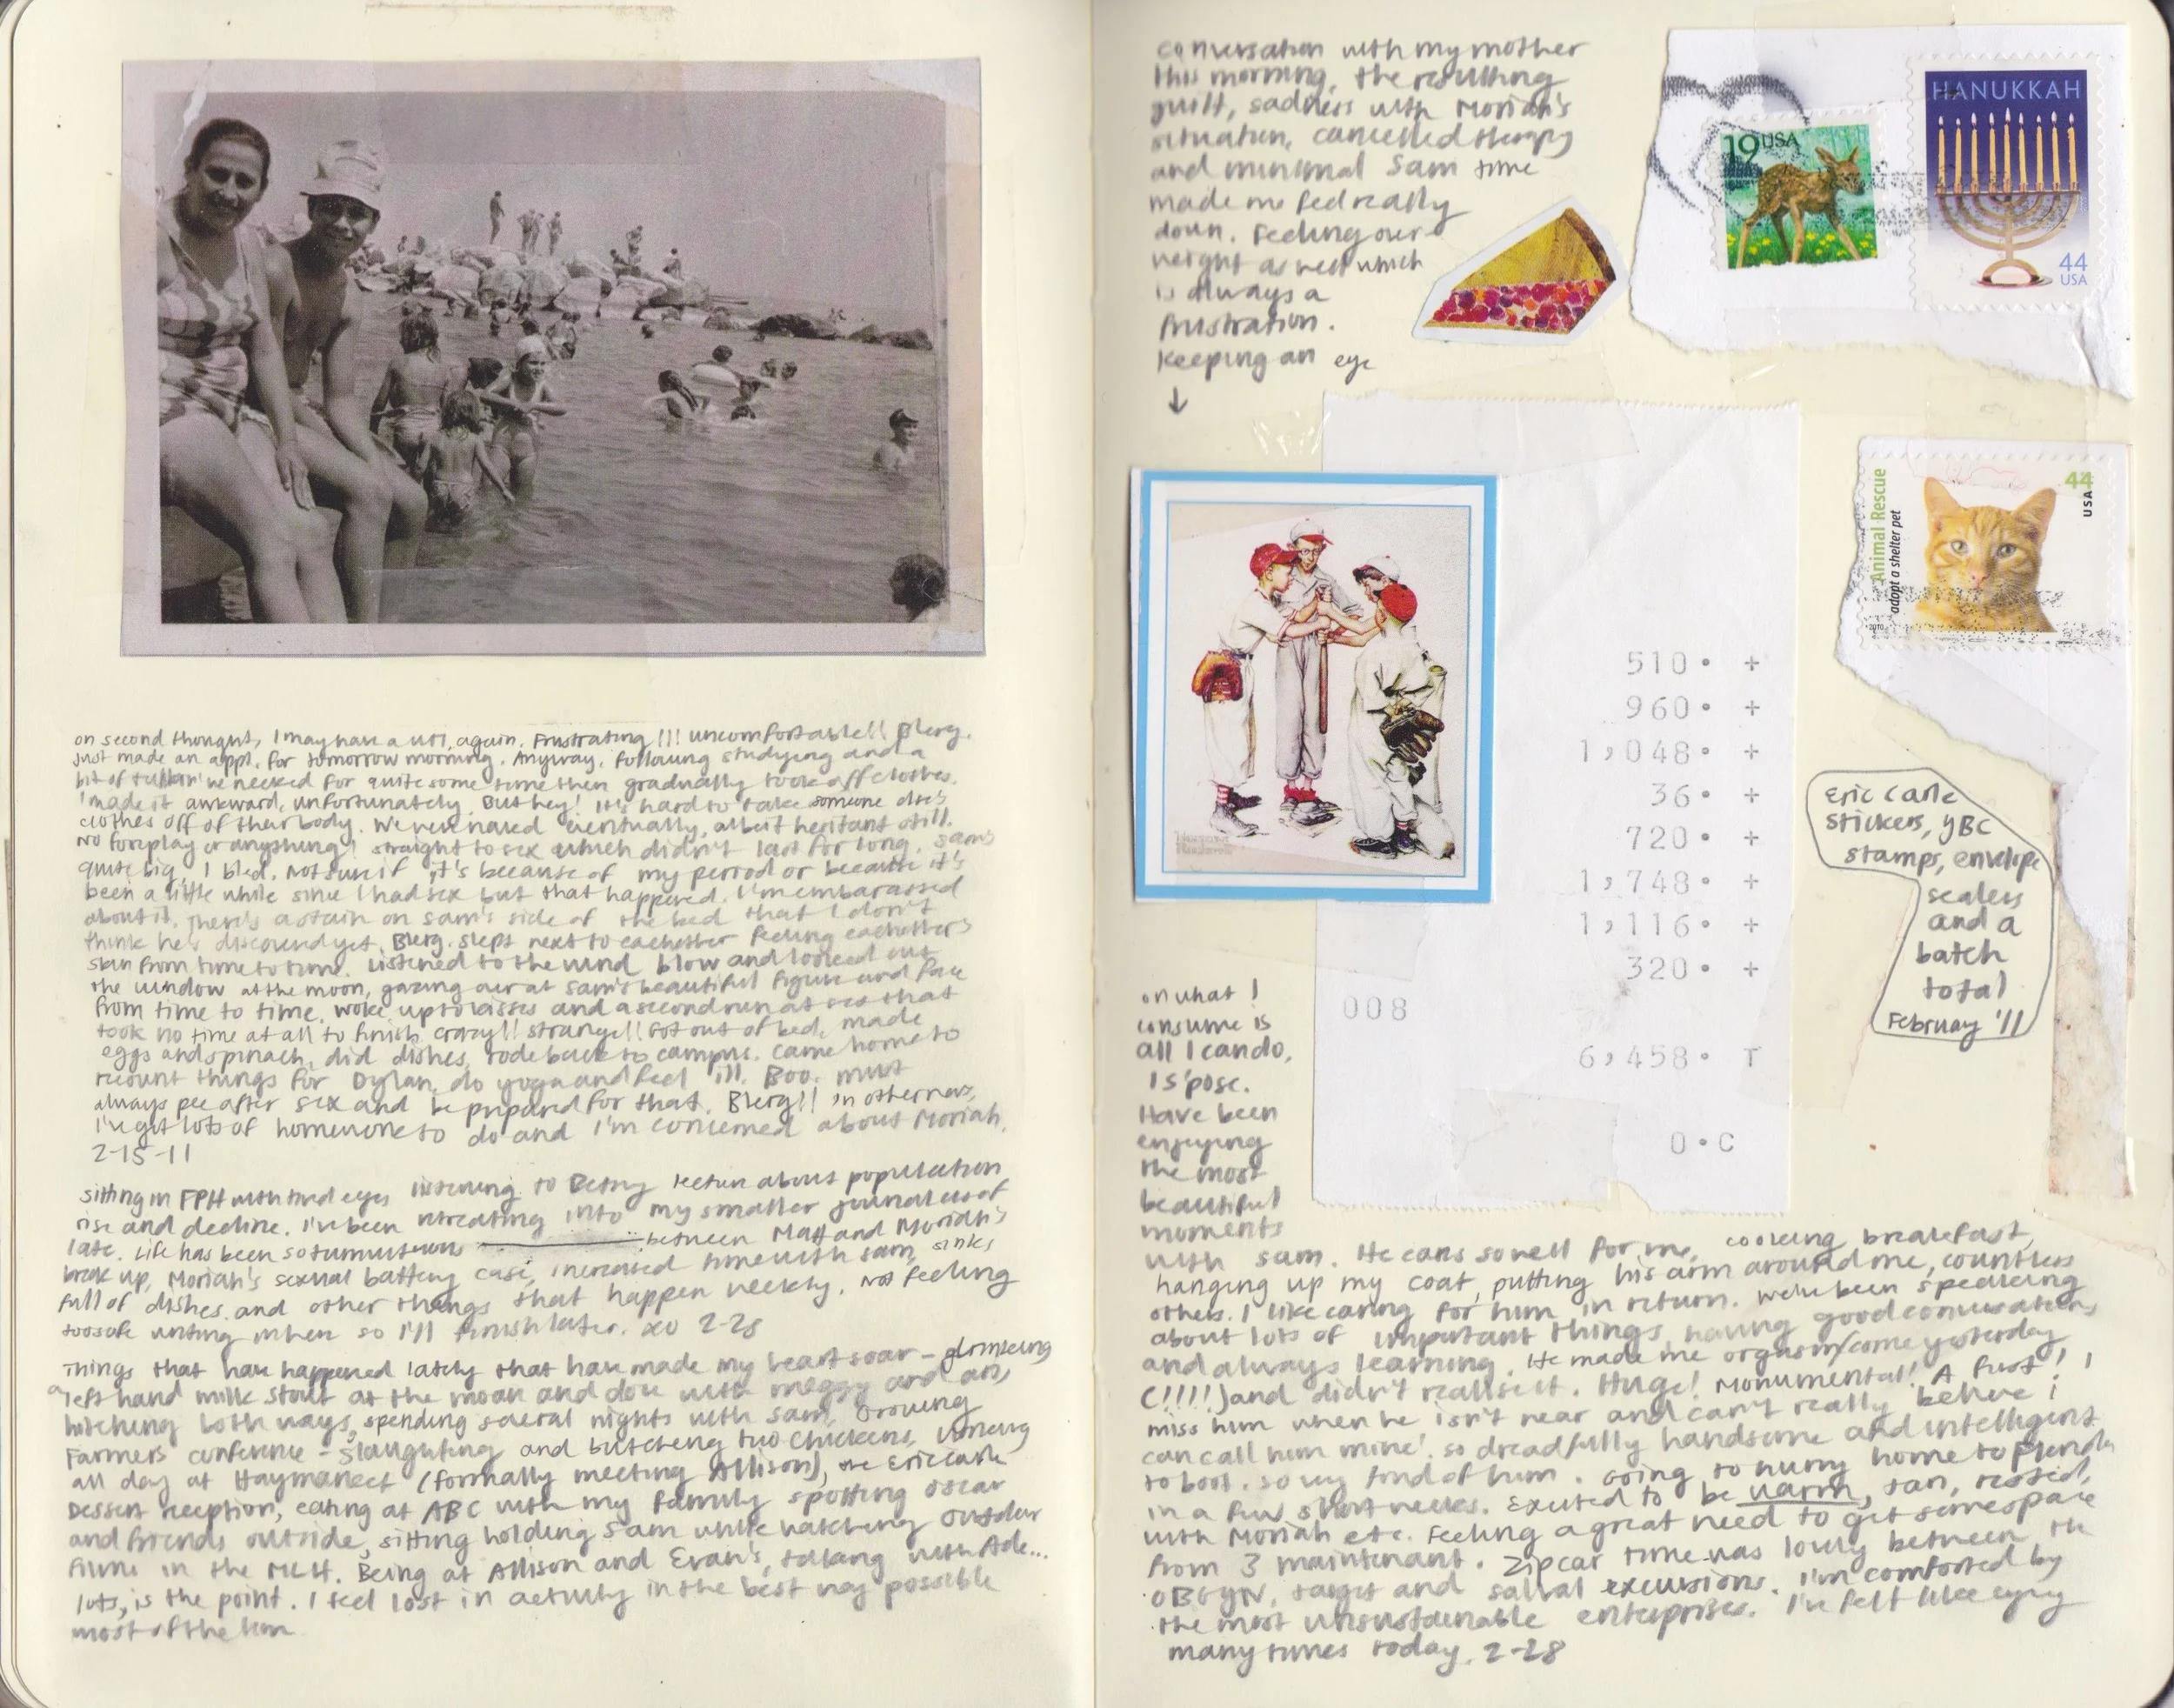 on second thought, I may have a UTI, again. Frustrating!!! uncomfortable!! Blerg.
just made an appt. for tomorrow morning. Anyway, following studying and a
bit of talkin' we necked for quite some time then gradually took off clothes.
I made it awkward, unfortunately. But hey! It's hard to take someone else's
clothes off of their body. We were naked eventually, albeit hesitant still.
No foreplay or anything! straight to sex which didn't last for long. Sam's
quite big. I bled. Not sure if it's because of my period or because it's
been a little while since I had sex but that happened. I'm embarassed
about it. There's a stain on Sam's side of the bed that I don't
think he's discovered yet. Blerg. slept next to eachother feeling eachother's
skin from time to time. Listened to the wind blow and looked out
the window at the moon, gazing over at Sam's beautiful figure and face
from time to time. woke up to kisses and a second run at sex that
took no time at all to finish. crazy!! strange!! Got out of bed, made
eggs and spinach, did dishes, rode back to campus. Came home to
recount things for Dylan, do yoga and feel ill. Boo. must
always pee after sex and be prepared for that. Blerg!! in other news,
I've got lots of homework to do and I'm concerned about Moriah.
2-15-11
sitting in FPH with tired eyes listening to Betsy lecture about population
rise and decline. I've been retreating into my smaller journal as of
late. Life has been so tumultuous between Matt and Moriah's
break up, Moriah's sexual battery case, increased time with Sam, sinks
full of dishes and other things that happen weekly. Not feeling
too safe writing so I'll finish later. xo 2-28
Things that have happened lately that have made my heart soar - drinking
a left hand milk stout at the moan and dove with meggy and
hitching both ways, spending several nights with Sam, Growing
Farmers conference - slaughting and butchering two chickens,
all day at Haymarket (formally meeting Allison), the Eric Carle
Dessert reception, eating at ABC with my family spotting Oscar
and friends outside, sitting holding Sam while watching outdoor
films in the MLH. Being at Allison and Evan's, talking with Ade...
lots, is the point. I feel lost in activity in the best way possible
most of the time.
conversation with my mother
this morning, the resulting
guilt, sadness with Moriah's
situation, cancelled therapy
and minimal Sam time
made me feel really
down. Feeling over-
weight as well which
is always a
frustration.
Keeping an eye
↓
19 USA
HANUKKAH
44
USA
Animal Rescue
adopt a shelter pet
44
USA
2010
Norman
Rockwell
510. +
960. +
1,048. +
36. +
720. +
1,748. +
1,116. +
320. +
008
6,458. T
0.C
Eric Carle
stickers, YBC
stamps, envelope
sealers
and a
batch
total
February '11
on what I
consume is
all I can do,
I s'pose.
Have been
enjoying
the most
beautiful
moments
with Sam. He cares so well for me, cooking breakfast,
hanging up my coat, putting his arm around me, countless
others. I like caring for him in return. We've been speaking
about lots of important things, having good conversations
and always learning. He made me orgasm/come yesterday
(!!!!) and didn't realise it. Huge! Monumental! A first! I
miss him when he isn't near and can't really believe i
can call him 'mine'. so dreadfully handsome and intelligent
to boot. so very fond of him. Going to hurry home to Florida
in a few short weeks. Excited to be warm, tan, rested,
with Moriah etc. Feeling a great need to get some space
from 3 maintenant. Zipcar time was lovely between the
OBGYN, target and salval excursions. I'm comforted by
the most unsustainable enterprises. I've felt like crying
many times today. 2-28